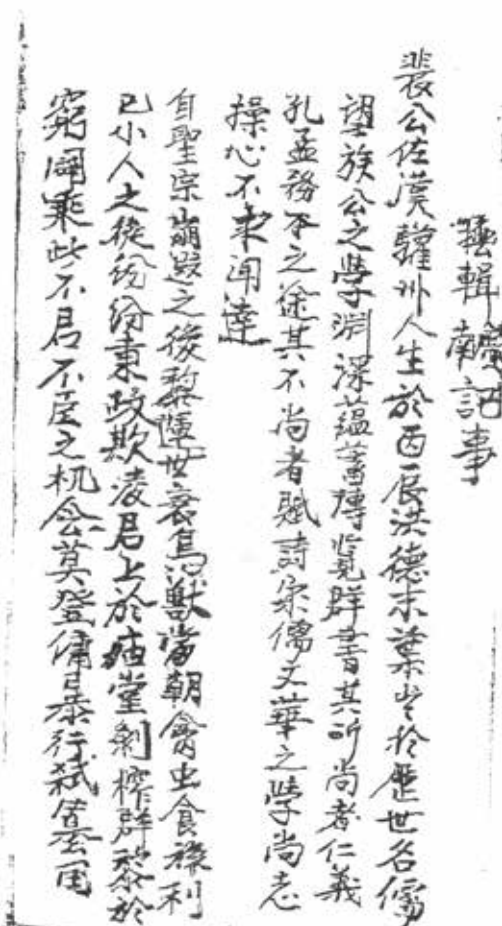 輯南記事
裴公佐漢驩州人生於丙辰洪德末葉出於歷世名儒
望族公之學淵深蘊蓄博覽群書其所尚者仁義
孔孟務本之途其不尚者賦詩宋儒文華之學尚志
操心不求聞達
自聖宗崩殂之後黎運世衰鳥獸當朝禽虫食祿利
已小人之徒紛紛秉政欺凌君上於庙堂剝榨群黎於
窮閻乘此不君不臣之机会莫登庸日恭行弑篡国